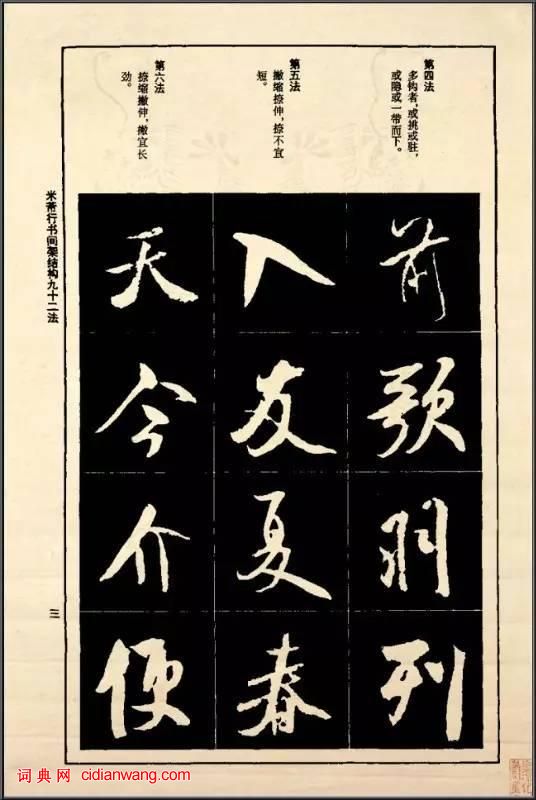 第四法
多钩者，或挑或驻，
或隐或一带而下。
前歌羽列
第五法
撇缩捺伸，捺不宜
短。
入友夏春
第六法
捺缩撇伸，撇宜长
劲。
天今介便
米芾行书间架结构九十二法
三
词典网 cidianwang.com